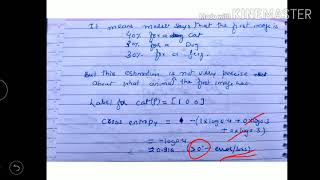 Made with KINEMASTER
It means model says that the first image is
40% for a cat
30% for a Dog
30% for a frog.
But this estimation is not very precise
about what animal the first image has
Label for cat(P) = [1 0 0]
Cross entropy = -(1×log0.4 + 0×log0.3
+ 0×log0.3)
= -log0.4
≈ 0.916 (>0:- error/loss)